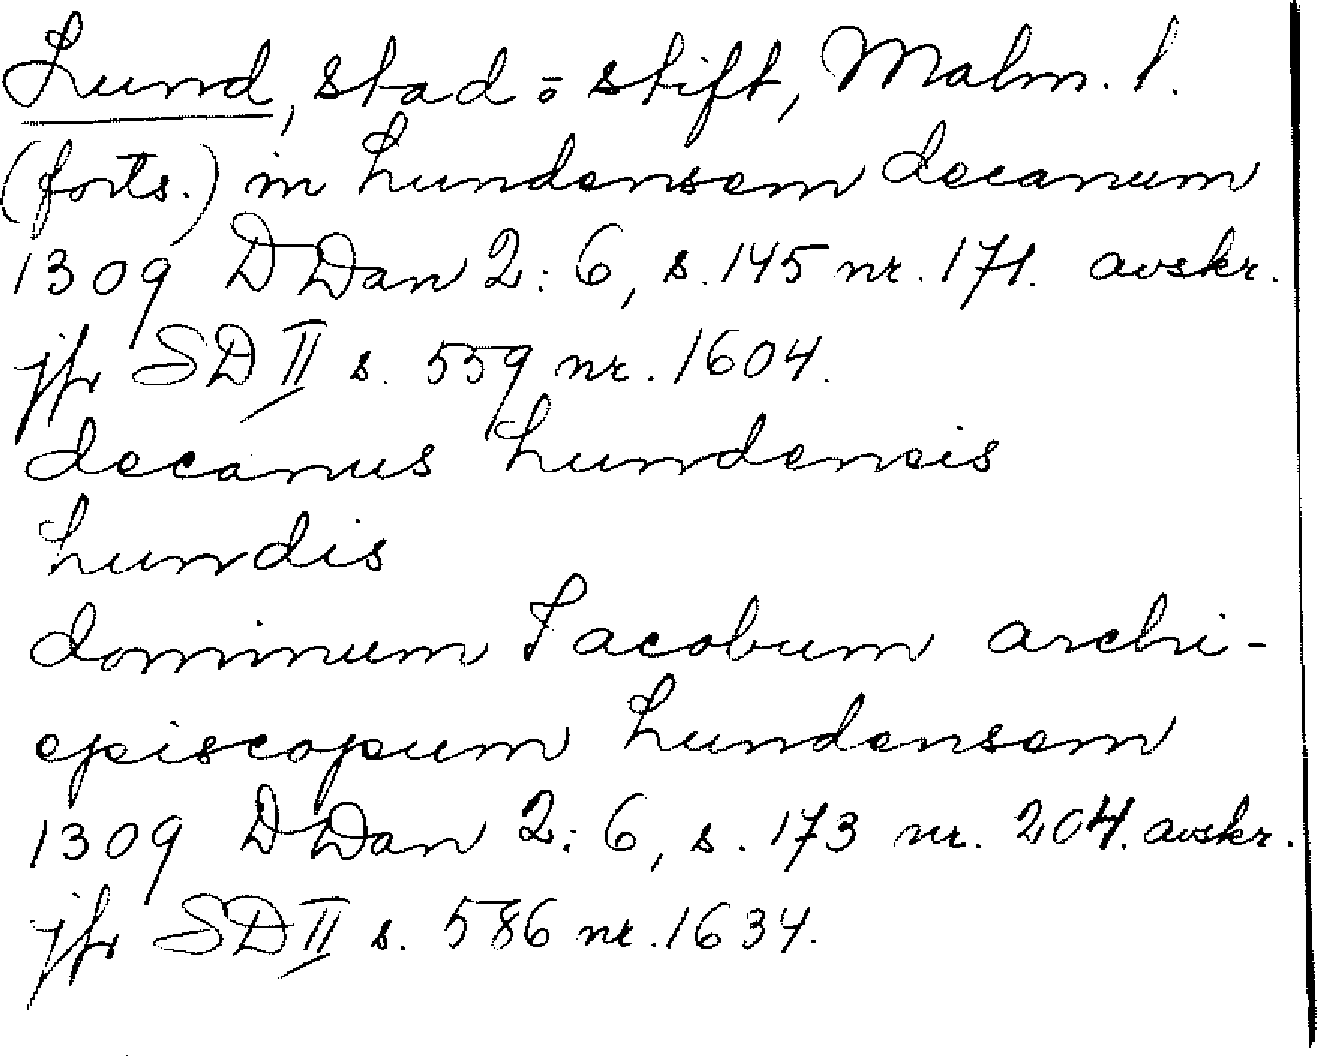 Lund, stad o stift, Malm. l.
(forts.) in Lundensem decanum
1309 DDan 2:6, s. 145 nr. 171. avskr.
jfr SD II s. 559 nr. 1604.
decanus Lundensis
Lundis
dominum Iacobum archi-
episcopum Lundensem
1309 DDan 2:6, s. 173 nr. 204. avskr.
jfr SD II s. 586 nr. 1634.